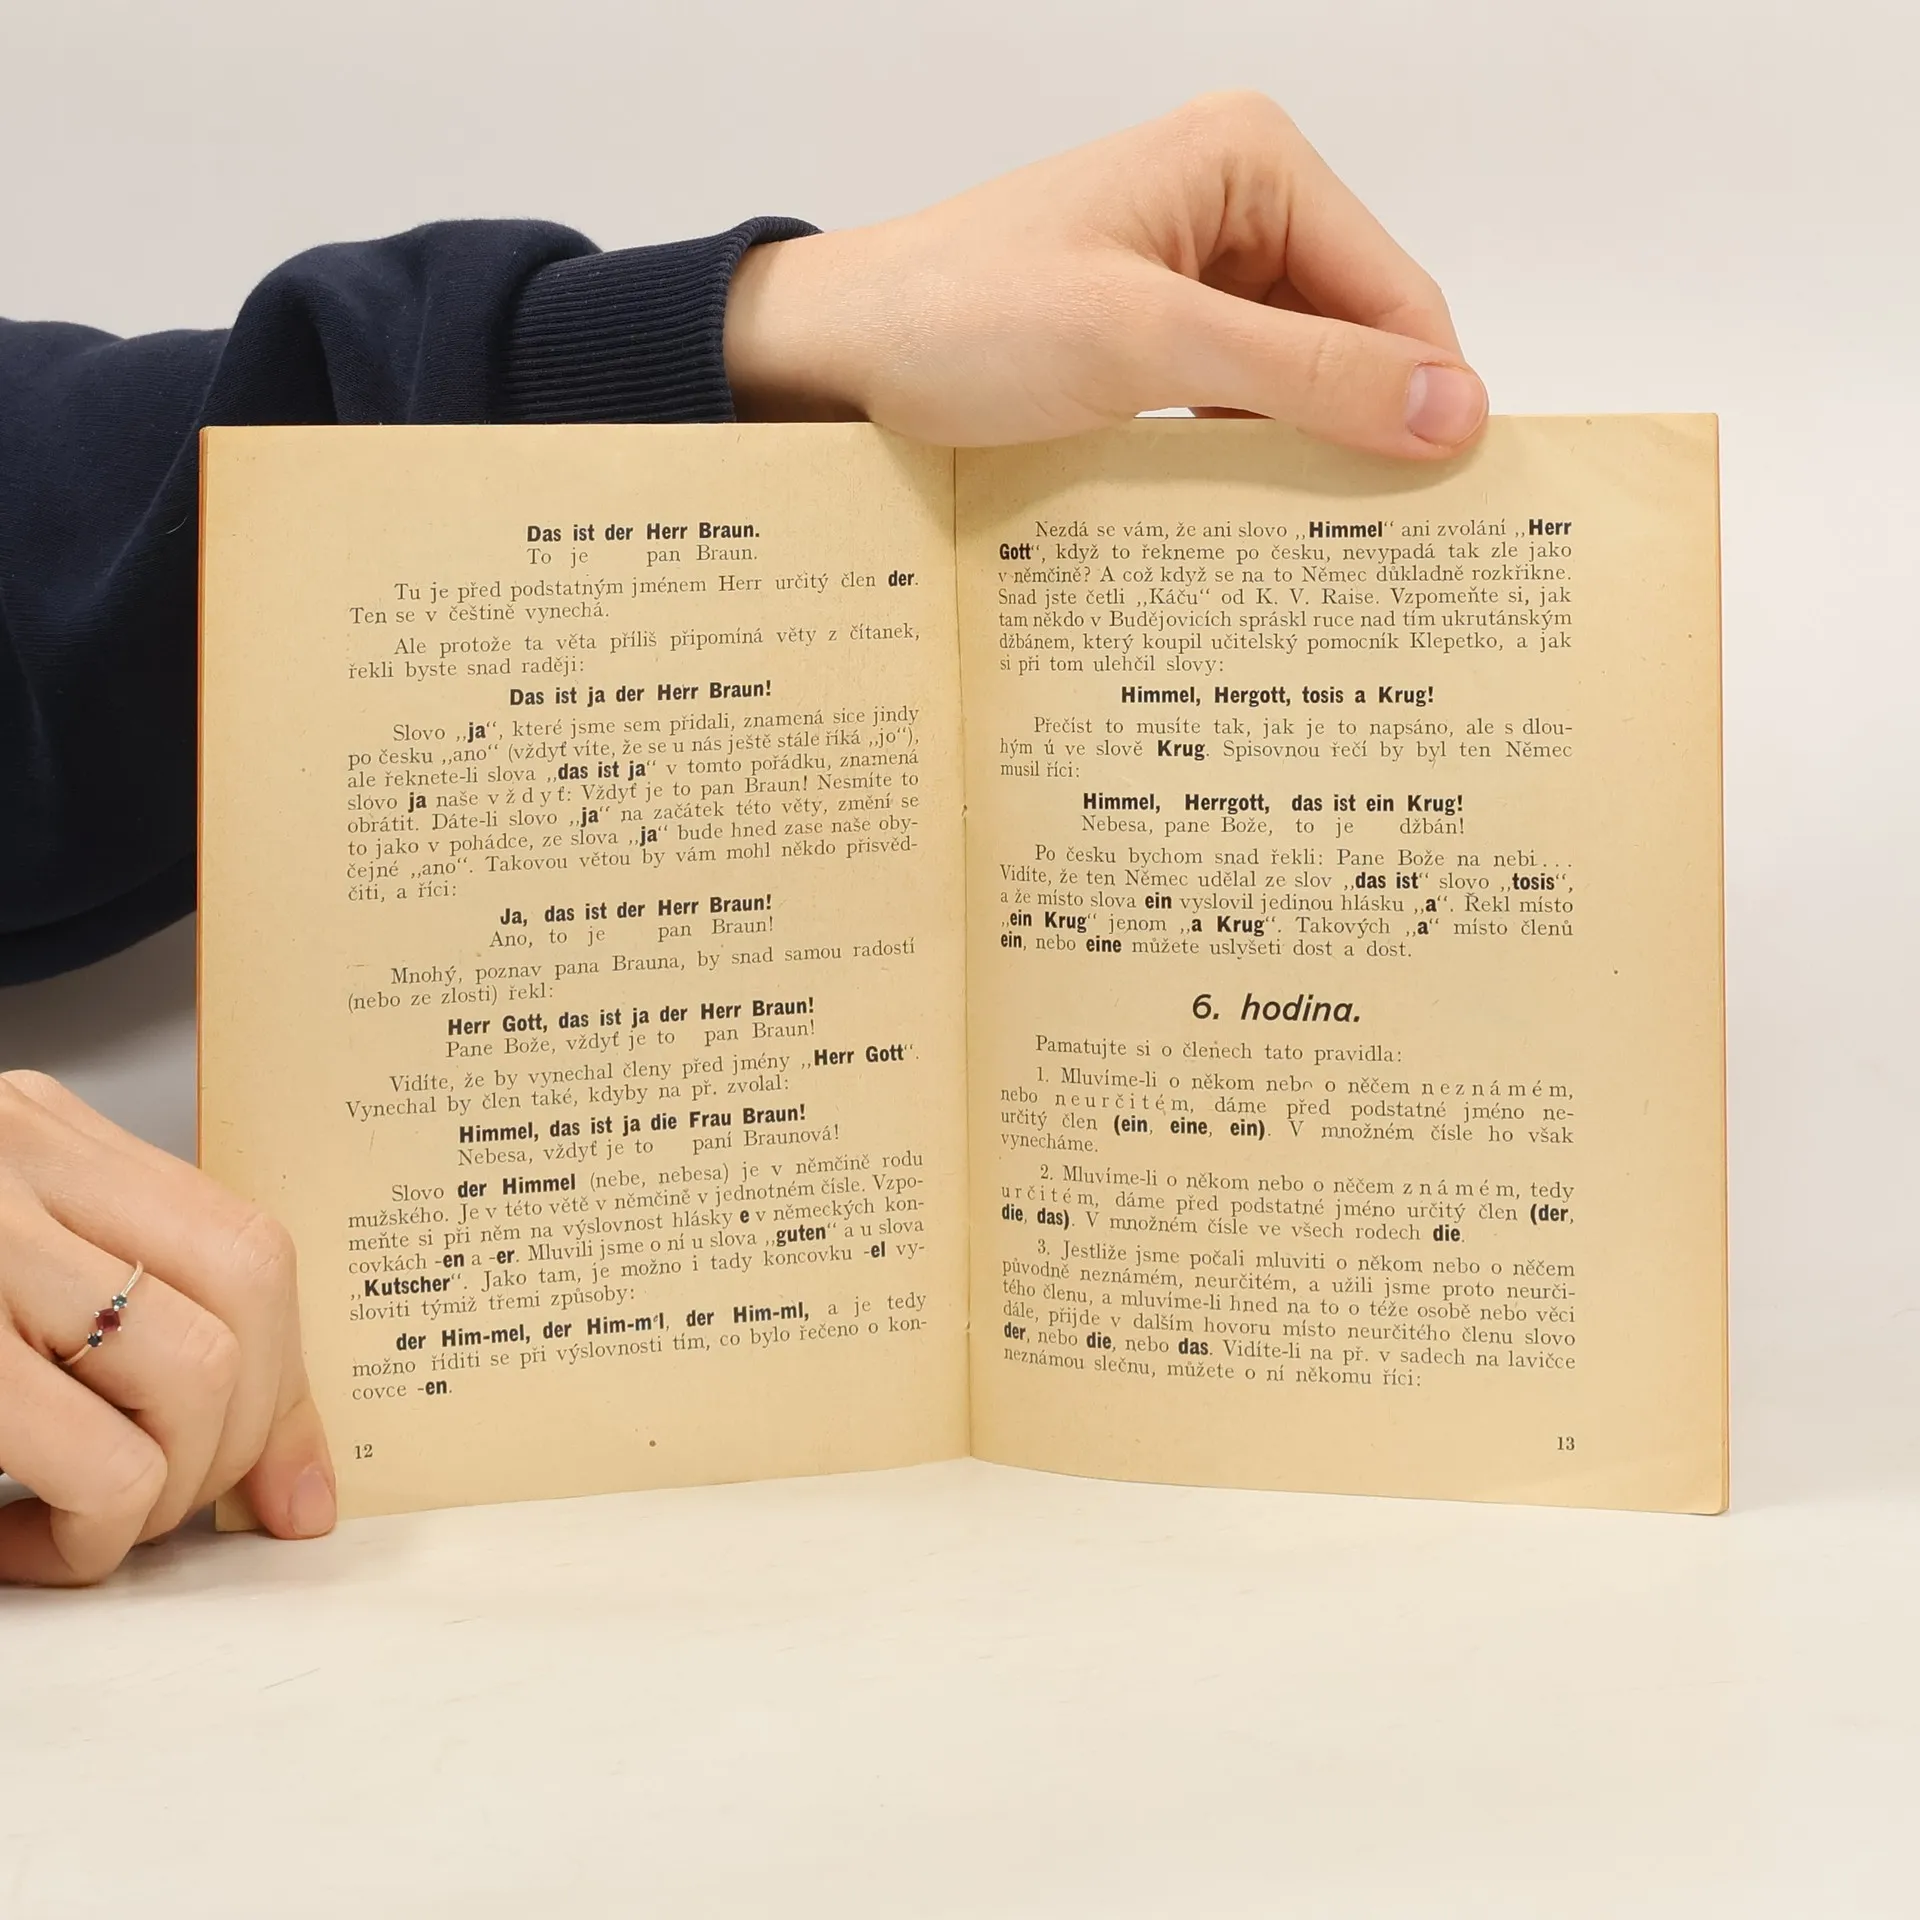 Das ist der Herr Braun.
To je pan Braun.
Tu je před podstatným jménem Herr určitý člen der.
Ten se v češtině vynechá.
Ale protože ta věta příliš připomíná věty z čítanek,
řekli byste snad raději:
Das ist ja der Herr Braun!
Slovo „ja“, které jsme sem přidali, znamená sice jindy
po česku „ano“ (vždyť víte, že se u nás ještě stále říká „jo“),
ale řeknete-li slova „das ist ja“ v tomto pořádku, znamená
slovo ja naše vždyť: Vždyť je to pan Braun! Nesmíte to
obrátit. Dáte-li slovo „ja“ na začátek této věty, změní se
to jako v pohádce, ze slova „ja“ bude hned zase naše oby-
čejné „ano“. Takovou větou by vám mohl někdo přisvěd-
čiti, a říci:
Ja, das ist der Herr Braun!
Ano, to je pan Braun!
Mnohý, poznav pana Brauna, by snad samou radostí
(nebo ze zlosti) řekl:
Herr Gott, das ist ja der Herr Braun!
Pane Bože, vždyť je to pan Braun!
Vidíte, že by vynechal členy před jmény „Herr Gott“.
Vynechal by člen také, kdyby na př. zvolal:
Himmel, das ist ja die Frau Braun!
Nebesa, vždyť je to paní Braunová!
Slovo der Himmel (nebe, nebesa) je v němčině rodu
mužského. Je v této větě v němčině v jednotném čísle. Vzpo-
meňte si při něm na výslovnost hlásky e v německých kon-
covkách -en a -er. Mluvili jsme o ní u slova „guten“ a u slova
„Kutscher“. Jako tam, je možno i tady koncovku -el vy-
sloviti týmiž třemi způsoby:
der Him-mel, der Him-mel, der Him-ml, a je tedy
možno říditi se při výslovnosti tím, co bylo řečeno o kon-
covce -en.
12
Nezdá se vám, že ani slovo „Himmel“ ani zvolání „Herr
Gott“, když to řekneme po česku, nevypadá tak zle jako
v němčině? A což když se na to Němec důkladně rozkřikne.
Snad jste četli „Káču“ od K. V. Raise. Vzpomeňte si, jak
tam někdo v Budějovicích spráskl ruce nad tím ukrutánským
džbánem, který koupil učitelský pomocník Klepetko, a jak
si při tom ulehčil slovy:
Himmel, Hergott, tosis a Krug!
Přečíst to musíte tak, jak je to napsáno, ale s dlou-
hým ú ve slově Krug. Spisovnou řečí by byl ten Němec
musil říci:
Himmel, Herrgott, das ist ein Krug!
Nebesa, pane Bože, to je džbán!
Po česku bychom snad řekli: Pane Bože na nebi...
Vidíte, že ten Němec udělal ze slov „das ist“ slovo „tosis“,
a že místo slova ein vyslovil jedinou hlásku „a“. Řekl místo
„ein Krug“ jenom „a Krug“. Takových „a“ místo členů
ein, nebo eine můžete uslyšeti dost a dost.
6. hodina.
Pamatujte si o členech tato pravidla:
1. Mluvíme-li o někom nebo o něčem neznámém,
nebo neurčitém, dáme před podstatné jméno ne-
určitý člen (ein, eine, ein). V množném čísle ho však
vynecháme.
2. Mluvíme-li o někom nebo o něčem známém, tedy
určitém, dáme před podstatné jméno určitý člen (der,
die, das). V množném čísle ve všech rodech die.
3. Jestliže jsme počali mluviti o někom nebo o něčem
původně neznámém, neurčitém, a užili jsme proto neurči-
tého členu, a mluvíme-li hned na to o téže osobě nebo věci
dále, přijde v dalším hovoru místo neurčitého členu slovo
der, nebo die, nebo das. Vidíte-li na př. v sadech na lavičce
neznámou slečnu, můžete o ní někomu říci:
13